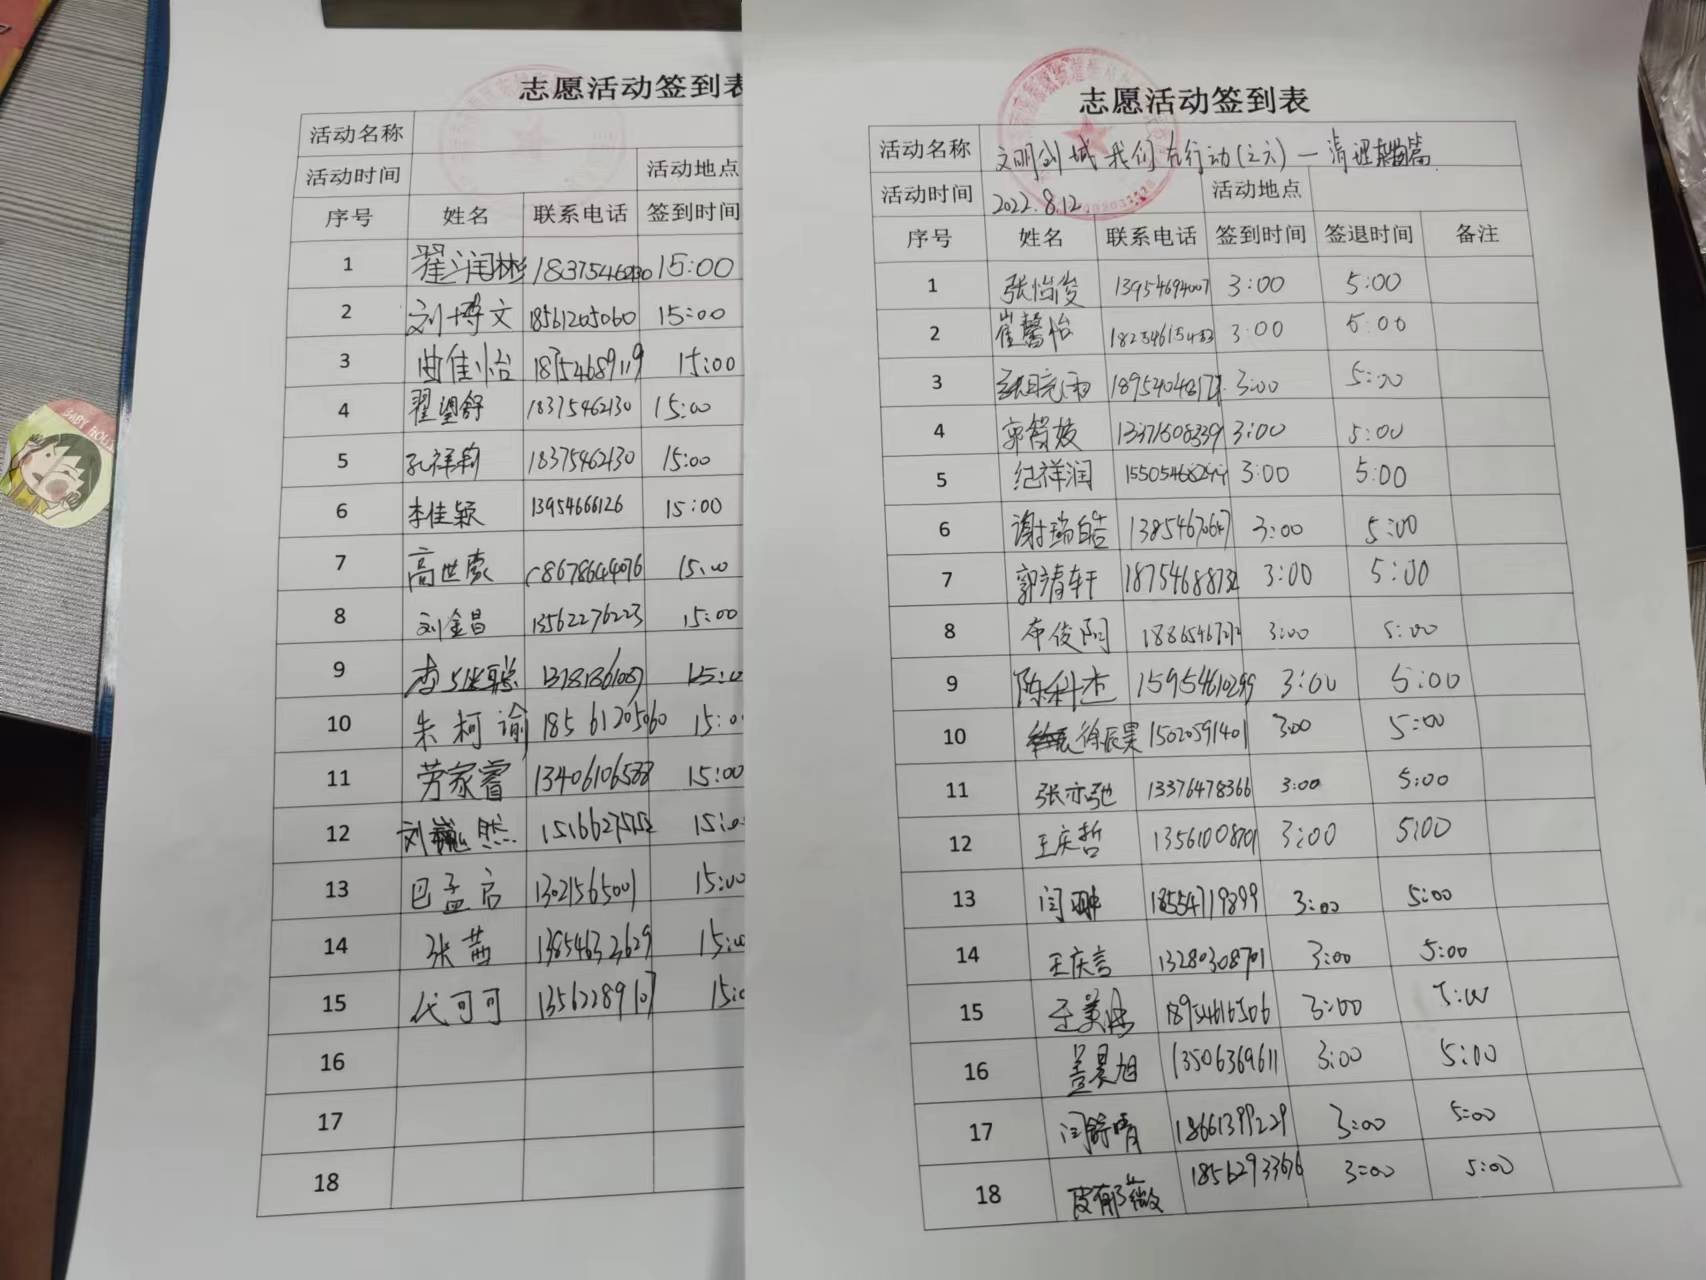 志愿活动签到表
活动名称
活动时间 活动地点
序号 姓名 联系电话 签到时间
1 翟润彬 15:00
2 刘博文 18561205060 15:00
3 曲佳怡 15:00
4 翟望舒 18375462130 15:00
5 孔祥莉 18375462130 15:00
6 李佳颖 13954666126 15:00
7 高世豪 18678644076 15:00
8 刘金昌 13562276223 15:00
9
10 朱柯谕 18561205060
11 劳家睿 15:00
12 然
13 巴孟启 13021565001 15:00
14 张茜 13954632629
15 代可可
16
17
18
志愿活动签到表
活动名称 文明创城 我们在行动(之六)—清理篇
活动时间 2022.8.12. 活动地点
序号 姓名 联系电话 签到时间 签退时间 备注
1 张怡俊 13954694007 3:00 5:00
2 崔馨怡 3:00 5:00
3 3:00 5:00
4 3:00 5:00
5 纪祥润 3:00 5:00
6 谢瑞皓 3:00 5:00
7 郭清轩 18754688732 3:00 5:00
8 3:00 5:00
9 陈科杰 15954610299 3:00 5:00
10 徐辰昊 15020591401 3:00 5:00
11 张亦弛 13376478366 3:00 5:00
12 王庆哲 13561008701 3:00 5:00
13 闫 18554719899 3:00 5:00
14 王庆言 13280308701 3:00 5:00
15 18954616506 3:00 5:00
16 盖晨旭 13506369611 3:00 5:00
17 闫舒晴 18661399229 3:00 5:00
18 皮郁薇 18562933676 3:00 5:00
BABY HOUSE